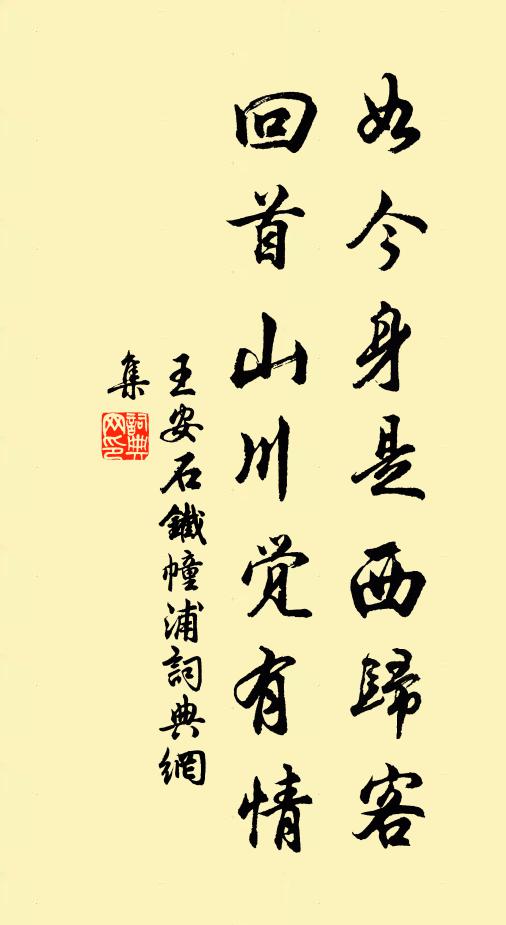 如今身是西歸客
回首山川觉有情
王安石鐵幢浦詞典網
集
詞典
网印